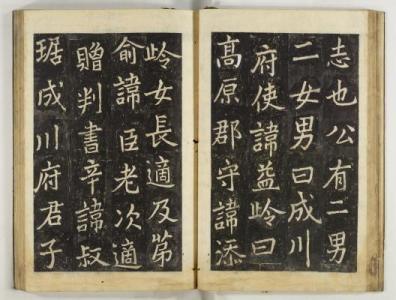 志也公有二男
二女男曰成川
府使諱益岭曰
髙原郡守諱添
岭女長適及第
俞諱臣老次適
贈判書辛諱叔
琚成川府君子